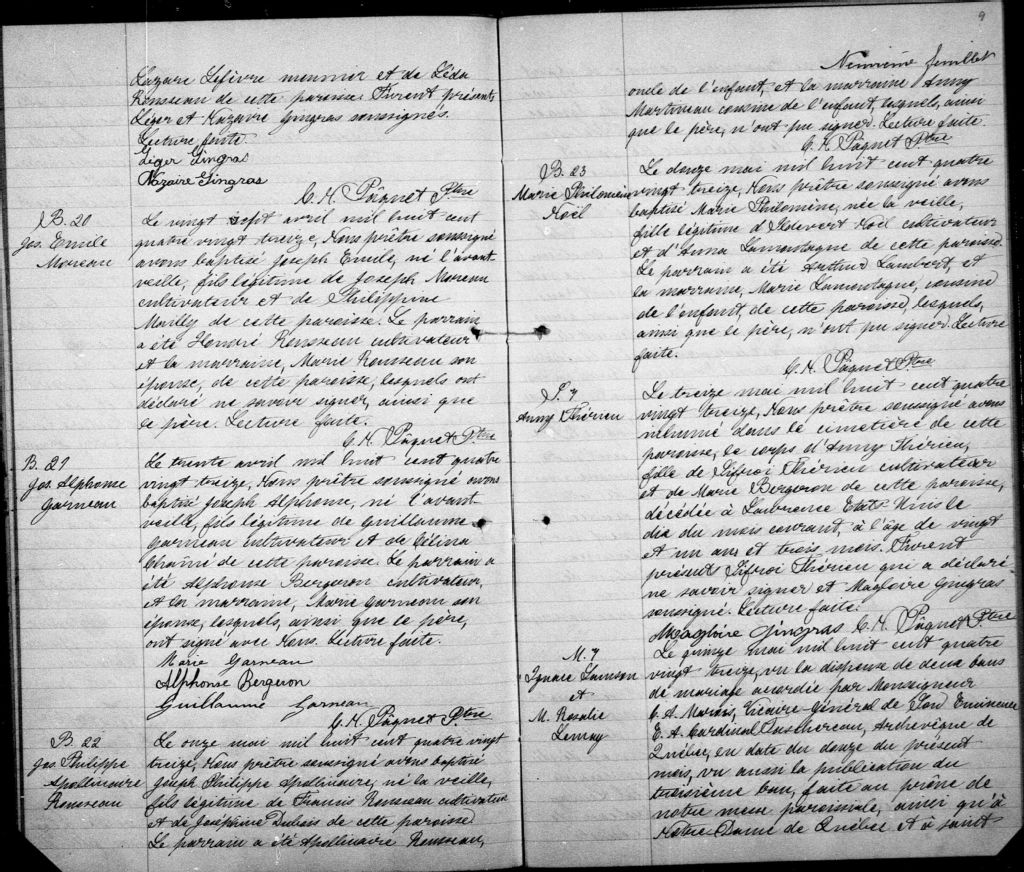 Lazare Lefivre meunier et de Léda
Rousseau de cette paroisse. Furent présents
Léger et Nazaire Gingras soussignés.
Lecture faite.
Léger Gingras
Nazaire Gingras
C. H. Pâquet Ptre
B. 20
Jos. Emile
Moreau
Le vingt sept avril mil huit cent
quatre vingt treize, Nous prêtre soussigné
avons baptisé Joseph Emile, né l'avant
veille, fils légitime de Joseph Moreau
cultivateur et de Philippine
Mailly de cette paroisse. Le parrain
a été Honoré Rousseau cultivateur
et la marraine, Marie Rousseau son
épouse, de cette paroisse, lesquels ont
déclaré ne savoir signer, ainsi que
le père. Lecture faite.
C. H. Pâquet Ptre
B. 21
Jos. Alphonse
Garneau
Le trente avril mil huit cent quatre
vingt treize, Nous prêtre soussigné avons
baptisé Joseph Alphonse, né l'avant
veille, fils légitime de Guillaume
Garneau cultivateur et de Célina
de cette paroisse. Le parrain a
été Alphonse Bergeron cultivateur,
et la marraine, Marie Garneau son
épouse, lesquels, ainsi que le père,
ont signé avec Nous. Lecture faite.
Marie Garneau
Alphonse Bergeron
Guillaume Garneau
C. H. Pâquet Ptre
B. 22
Jos. Philippe
Apollinaire
Rousseau
Le onze mai mil huit cent quatre vingt
treize, Nous prêtre soussigné avons baptisé
Joseph Philippe Apollinaire, né la veille,
fils légitime de Francis Rousseau cultivateur
et de Joséphine Dubois de cette paroisse.
Le parrain a été Apollinaire Rousseau,
9
Neuvième feuillet
oncle de l'enfant, et la marraine Anny
Martineau cousine de l'enfant, lesquels, ainsi
que le père, n'ont pu signer. Lecture faite.
C. H. Pâquet Ptre
B. 23
Marie Philomène
Noël
Le douze mai mil huit cent quatre
vingt treize, Nous prêtre soussigné avons
baptisé Marie Philomène, née la veille,
fille légitime d'Aldevert Noël cultivateur
et d'Anna Lamontagne de cette paroisse.
Le parrain a été Arthur Lambert, et
la marraine, Marie Lamontagne, cousine
de l'enfant, de cette paroisse, lesquels,
ainsi que le père, n'ont pu signer. Lecture
faite.
C. H. Pâquet Ptre
S. 7
Anny Thérien
Le treize mai mil huit cent quatre
vingt treize, Nous prêtre soussigné avons
inhumé dans le cimetière de cette
paroisse, le corps d'Anny Thérien,
fille de Sifroi Thérien cultivateur
et de Marie Bergeron de cette paroisse,
décédée à Lawrence Etats Unis le
dix du mois courant, à l'âge de vingt
et un ans et trois mois. Furent
présent Sifroi Thérien qui a déclaré
ne savoir signer et Magloire Gingras
soussigné. Lecture faite.
Magloire Gingras C. H. Pâquet Ptre
M. 7
Ignace Samson
et
M. Rosalie
Lemay
Le quinze mai mil huit cent quatre
vingt treize, vu la dispense de deux bans
de mariage accordée par Monseigneur
C. A. Marois, Vicaire-Général de Son Eminence
E. A. Cardinal Taschereau, Archevêque de
Québec, en date du douze du présent
mois, vu aussi la publication du
troisième ban, faite au prône de
notre messe paroissiale, ainsi qu'à
Notre-Dame de Québec et à saint